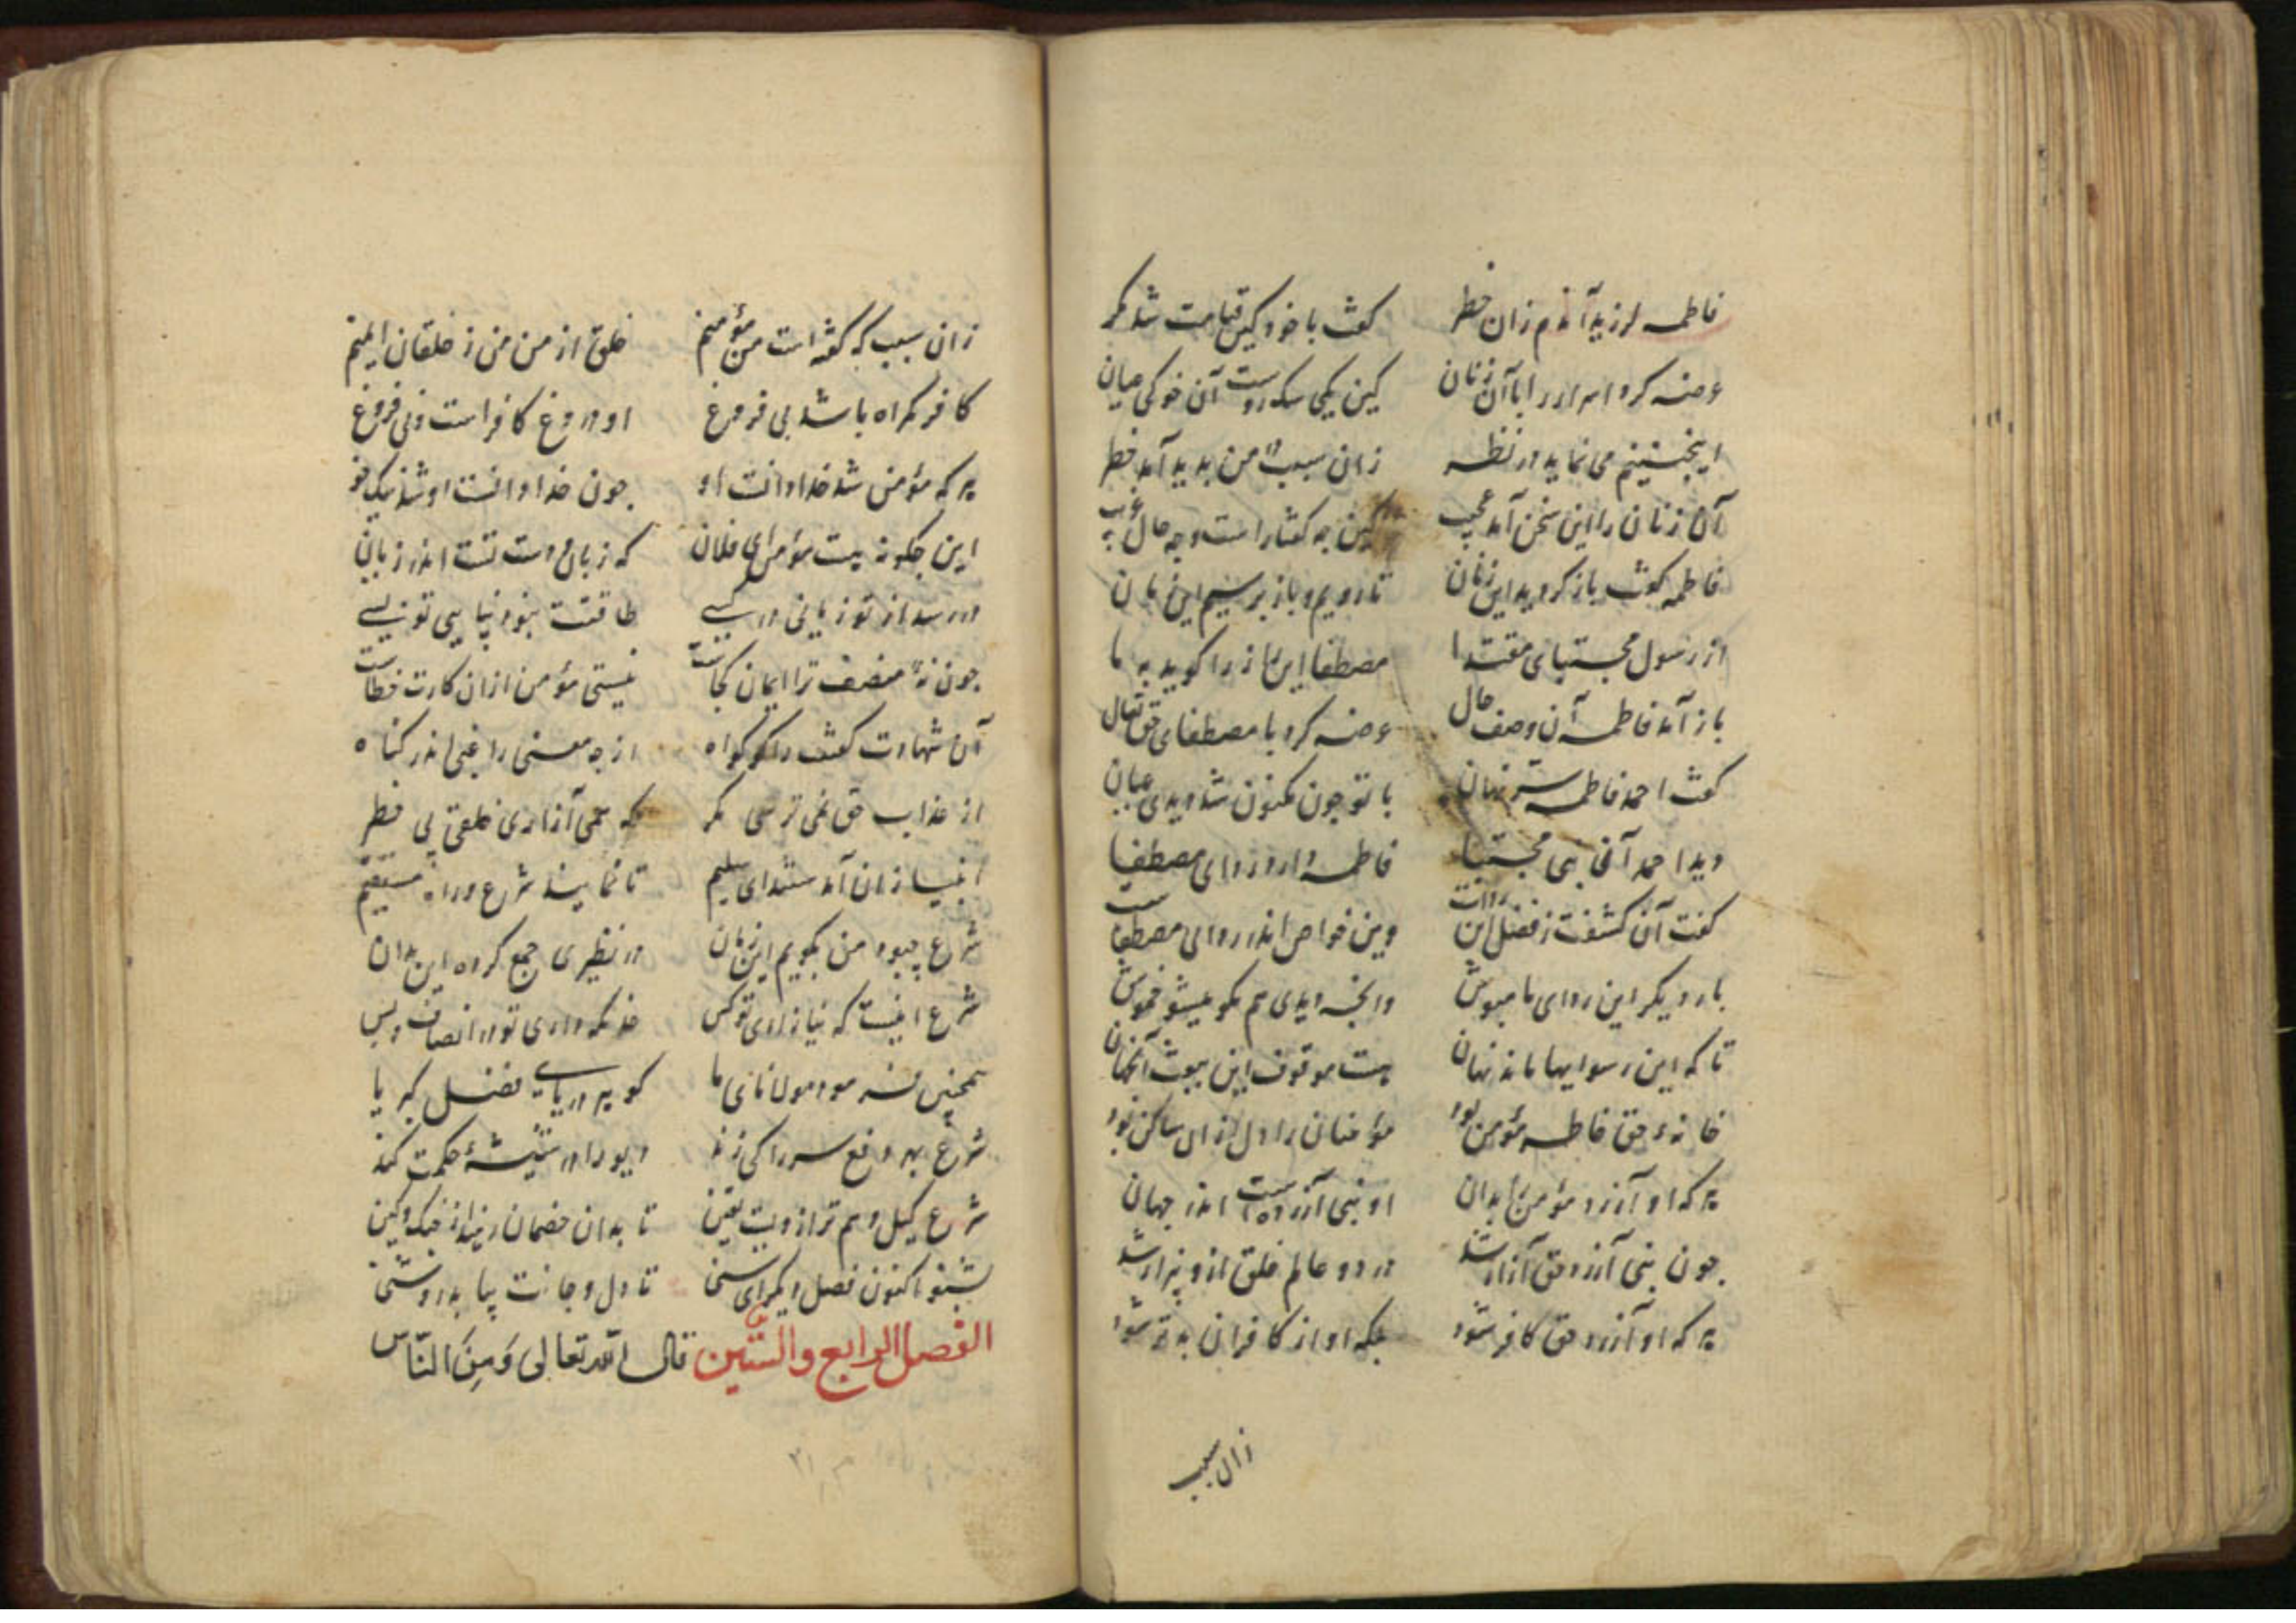 فاطمه لرزید آندم زان خطر کفت با خود کین قیامت شد مکر
عرضه کرد اسرار را با آن زنان کین یکی سکروست آن خوکی میان
اینچنینم می نماید در نظر زان سبب در من بدید آمد خطر
آن زنان را این سخن آمد عجب کین چه کفتار است و چه حال عجب
فاطمه کفت باز کردید این زنان تا رویم و باز پرسیم این بیان
از رسول مجتبای مقتدا مصطفا این راز را کوید به ما
باز آمد فاطمه آن وصف حال عرضه کرد با مصطفای حق تعال
کفت احمد فاطمه سر نهان با تو چون مکنون شد دیدی عیان
دید احمد آن نبی مجتبا فاطمه دارد ردای مصطفا
کفت آن کشفت ز فضل این رداست وین خواص اندر ردای مصطفاست
بار دیکر این ردای ما مپوش وانچه دیدی هم مکو میشو خموش
تا که این رسواییها ماند نهان هست موقوف این بیوت آنجهان
خانهٔ حق فاطمه مؤمن بود مؤمنان را دل از آن ساکن بود
هر که او آزرد مؤمن را بدان او نبی آزرده است اندر جهان
چون نبی آزرد حق آزار شد در دو عالم خلق ازو بیزار شد
هر که او آزرد حق کافر شود بلکه او از کافران بدتر شود
زان سبب
زان سبب که کفته است من مؤمنم خلق از من من ز خلقان ایمنم
کافر کمراه باشد بی فروغ او دروغ کافر است و بی فروغ
هر که مؤمن شد خدا دانست او چون خدا دانست او شد نیک خو
این چکونه هست مؤمن ای فلان که زبان و دست تست اندر زیان
در رسد از تو زیانی در کسی طاقتت نبود نیایی تو بسی
چون نهٔ منصف ترا ایمان کجاست نیستی مؤمن ازان کارت خطاست
آن شهادت کفت را کو کواه از چه معنی را غبی اندر کناه
از عذاب حق نمی ترسی مکر که همی آزاری خلقی بی خطر
انبیا زان آمدستند ای سلیم تا نمایند شرع و راه مستقیم
شرع چبود من بکویم این زمان در نظیری جمع کرده این بدان
شرع اینست که نیازاری تو کس خذ نکه داری تو در انصاف و بس
همچنین فرمود مولانای ما کو پر دریای فضل کبریا
شرع بهر دفع سر را کی زند دیو را در شیشهٔ حکمت کند
شرع کیل و هم ترازویست یقین تا بدان خصمان رهند از جنک و کین
بشنو اکنون فصل دیکر ای سنی تا دل و جانت بیابد روشنی
الفصل الرابع والستین قال الله تعالی وَمِنَ النّاس